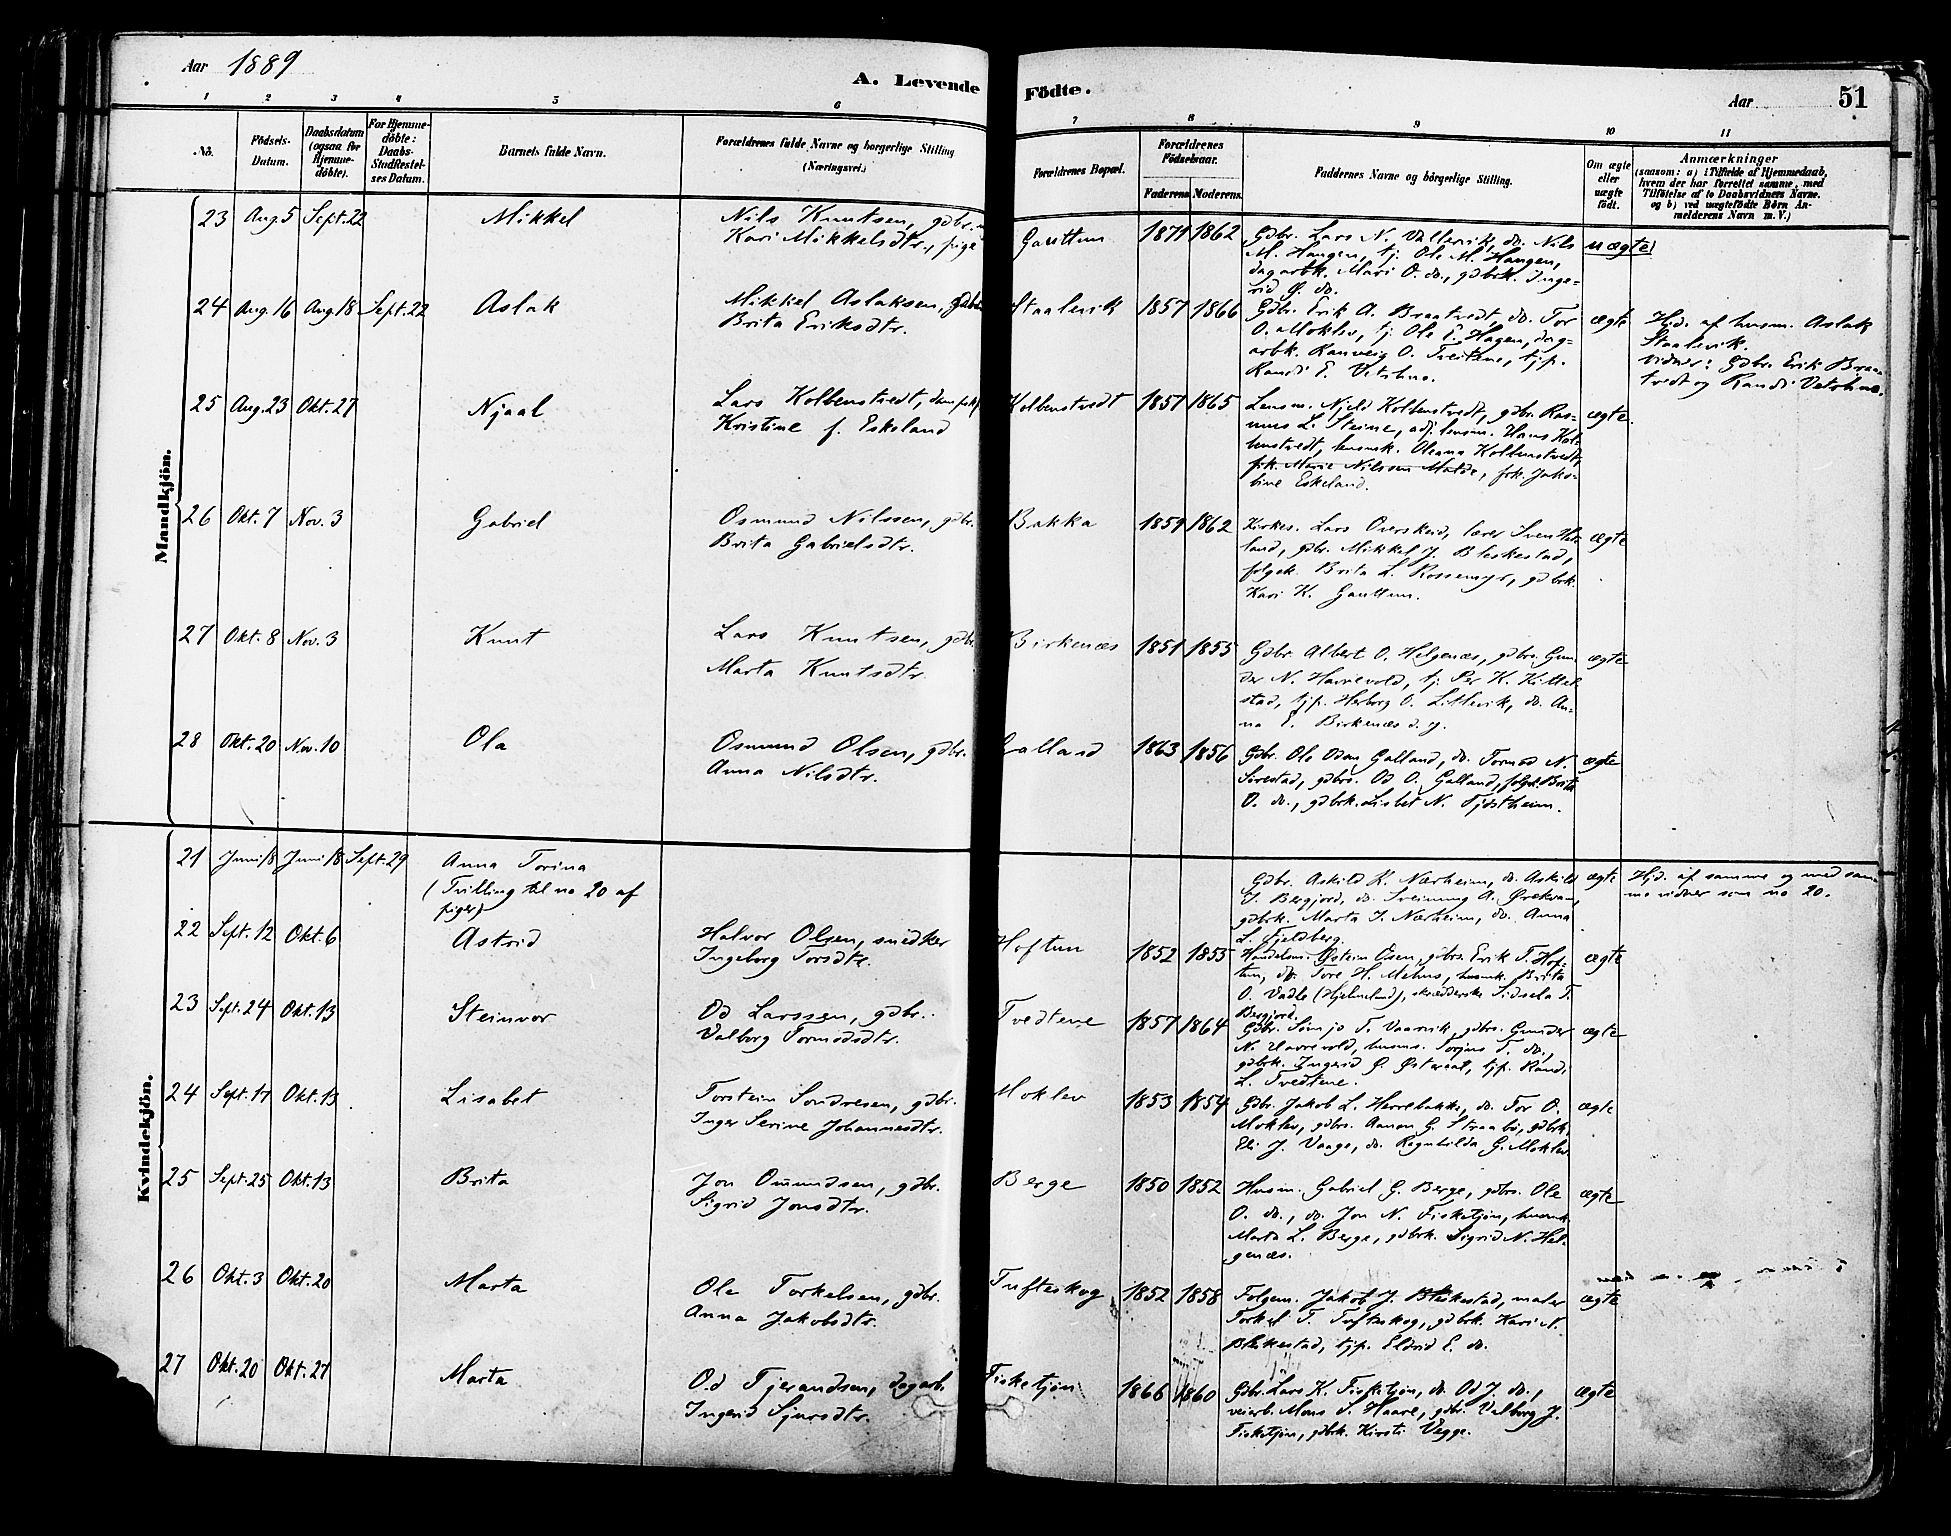 Aar 1889
A. Levende Födte.
Aar
51
1 2 3 4 5 6 7 8 9 10 11
No.
Födsels-Datum.
Daabsdatum (ogsaa for Hjemme-döbte).
For Hjemme-döbte: Daabs-Stadfæstel-ses Datum.
Barnets fulde Navn.
Forældrenes fulde Navne og borgerlige Stilling (Næringsvei.)
Forældrenes Bopæl.
Forældrenes Födselsaar.
Faderens. Moderens.
Faddernes Navne og börgerlige Stilling.
Om ægte eller uægte födt.
Anmærkninger
(saasom: a) i Tilfælde af Hjemmedaab,
hvem der har forrettet samme, med
Tilföielse af to Daabsvidners Navne.
og b) ved uægtefödte Börn An-
melderens Navn m. V.)
Mandkjön.
23 Aug. 5 Sept. 22 Mikkel Nils Knutsen, gdbr.
Kari Mikkelsdtr., pige
Gauttun 1871 1862 Gdbr. Lars N. Vallevik, do. Nils
M. Haugen, tj. Ole M. Haugen,
dagarbk. Mari O. do., gdbrk. Inge-
rid G. do.
uægte
24 Aug. 16 Aug. 18 Sept. 22 Aslak Mikkel Aslaksen, gdbr.
Brita Eriksdtr.
Staalevik 1857 1866 Gdbr. Erik A. Braatvedt, do. Tor
O. Moklev, tj. Ole E. Hagen, dag-
arbk. Ranveig O. Tveitene, tjp.
Randi E. Vetrhus.
ægte Hjd. af husm. Aslak
Staalevik.
Vidner: Gdbr. Erik Braa-
tvedt og Randi Vetrhus.
25 Aug. 23 Okt. 27 Njaal Lars Kolbenstvedt,
Kristine f. Eskeland
Kolbenstvedt 1857 1865 Lensm. Njeld Kolbenstvedt, gdbr. Ras-
mus L. Steine, adj. lensm. Hans Kol-
benstvedt, lensmk. Oleana Kolbenstvedt,
frk. Marie Nilssen Malde, frk. Jako-
bine Eskeland.
ægte.
26 Okt. 7 Nov. 3 Gabriel Osmund Nilssen, gdbr.
Brita Gabrielsdtr.
Bakka 1859 1862 Kirkes. Lars Overskeid, lærer Sven Hei-
land, gdbr. Mikkel J. Bleskestad,
folgek. Brita L. Rossemyr, gdbrk.
Kari K. Gauttun.
ægte
27 Okt. 8 Nov. 3 Knut Lars Knutsen, gdbr.
Marta Knutsdtr.
Birkenæs 1851 1855 Gdbr. Albert O. Helgenæs, gdbrs. Gun-
der N. Havrevold, tj. Per K. Kittel-
stad, tjp. Herborg O. Littlevik, do. An-
na E. Birkenæs d. y.
ægte
28 Okt. 20 Nov. 10 Ola Osmund Olsen, gdbr.
Anna Nilsdtr.
Galland 1863 1856 Gdbr. Ole Odsen Galland, do. Tormod N.
Sørestad, gdbrs. Od O. Galland, folgk. Brita
O. do., gdbrk. Lisbet N. Tjøstheim.
ægte
Kvindekjön.
21 Juni 18 Juni 18 Sept. 29 Anna Torina
(Tvilling til no 20 af
piger)
Gdbr. Askild K. Nærheim, do. Askild
S. Bergjord, do. Sveinung A. Ørekvam,
gdbrk. Marta S. Nærheim, do. Anna
L. Fjeldberg.
ægte Hjd. af samme og med sam-
me vidner som no 20.
22 Sept. 12 Okt. 6 Astrid Halvor Olsen, snedker
Ingeborg Torsdtr.
Hoftun 1852 1855 Handelsm. Østein Osen, gdbrs. Erik T. Hof-
tun, do. Tore H. Mehus, husmk. Brita
O. Vadla (Hjelmeland), skrædderske Sidsela T.
Bergjord.
ægte
23 Sept. 24 Okt. 13 Steinvor Od Larssen, gdbr.
Valborg Tormodsdtr.
Tvedtene 1857 1864 Gdbr. Simjo T. Vaarvik, gdbrs. Gunder
N. Havrevold, husms. Torjus T. do.,
gdbrk. Ingerid G. Østeraal, tjp. Randi
L. Tvedtene.
ægte
24 Sept. 17 Okt. 13 Lisabet Torstein Sondresen, gdbr.
Inger Serine Johannesdtr.
Moklev 1853 1854 Gdbr. Jakob L. Herrebakke, do. Tor O.
Moklev, gdbrs. Aanon G. Straabø, gdbrk.
Eli J. Vaage, do. Ragnhilda G. Moklev
ægte
25 Sept. 25 Okt. 13 Brita Jon Omundsen, gdbr.
Sigrid Jonsdtr.
Berge 1850 1852 Husm. Gabriel G. Berge, gdbrs. Ole
O. do., do. Jon N. Fisketjøn, husmk.
Marta L. Berge, gdbrk. Sigrid N. Hel-
genæs.
ægte
26 Okt. 3 Okt. 20 Marta Ole Torkelsen, gdbr.
Anna Jakobsdtr.
Tufteskog 1852 1858 Folgem. Jakob J. Bleskestad, maler
Torkel T. Tufteskog, gdbrk. Kari N.
Bleskestad, tjp. Eldrid E. do.
ægte
27 Okt. 20 Okt. 27 Marta Od Tjerandsen, dagarb.
Ingerid Sjursdtr.
Fisketjøn 1866 1860 Gdbr. Lars K. Fisketjøn, do. Od J. do.,
veiarb. Mons S. Haare, gdbr. Valborg J.
Fisketjøn, gdbrk. Kirsti Vegge.
ægte